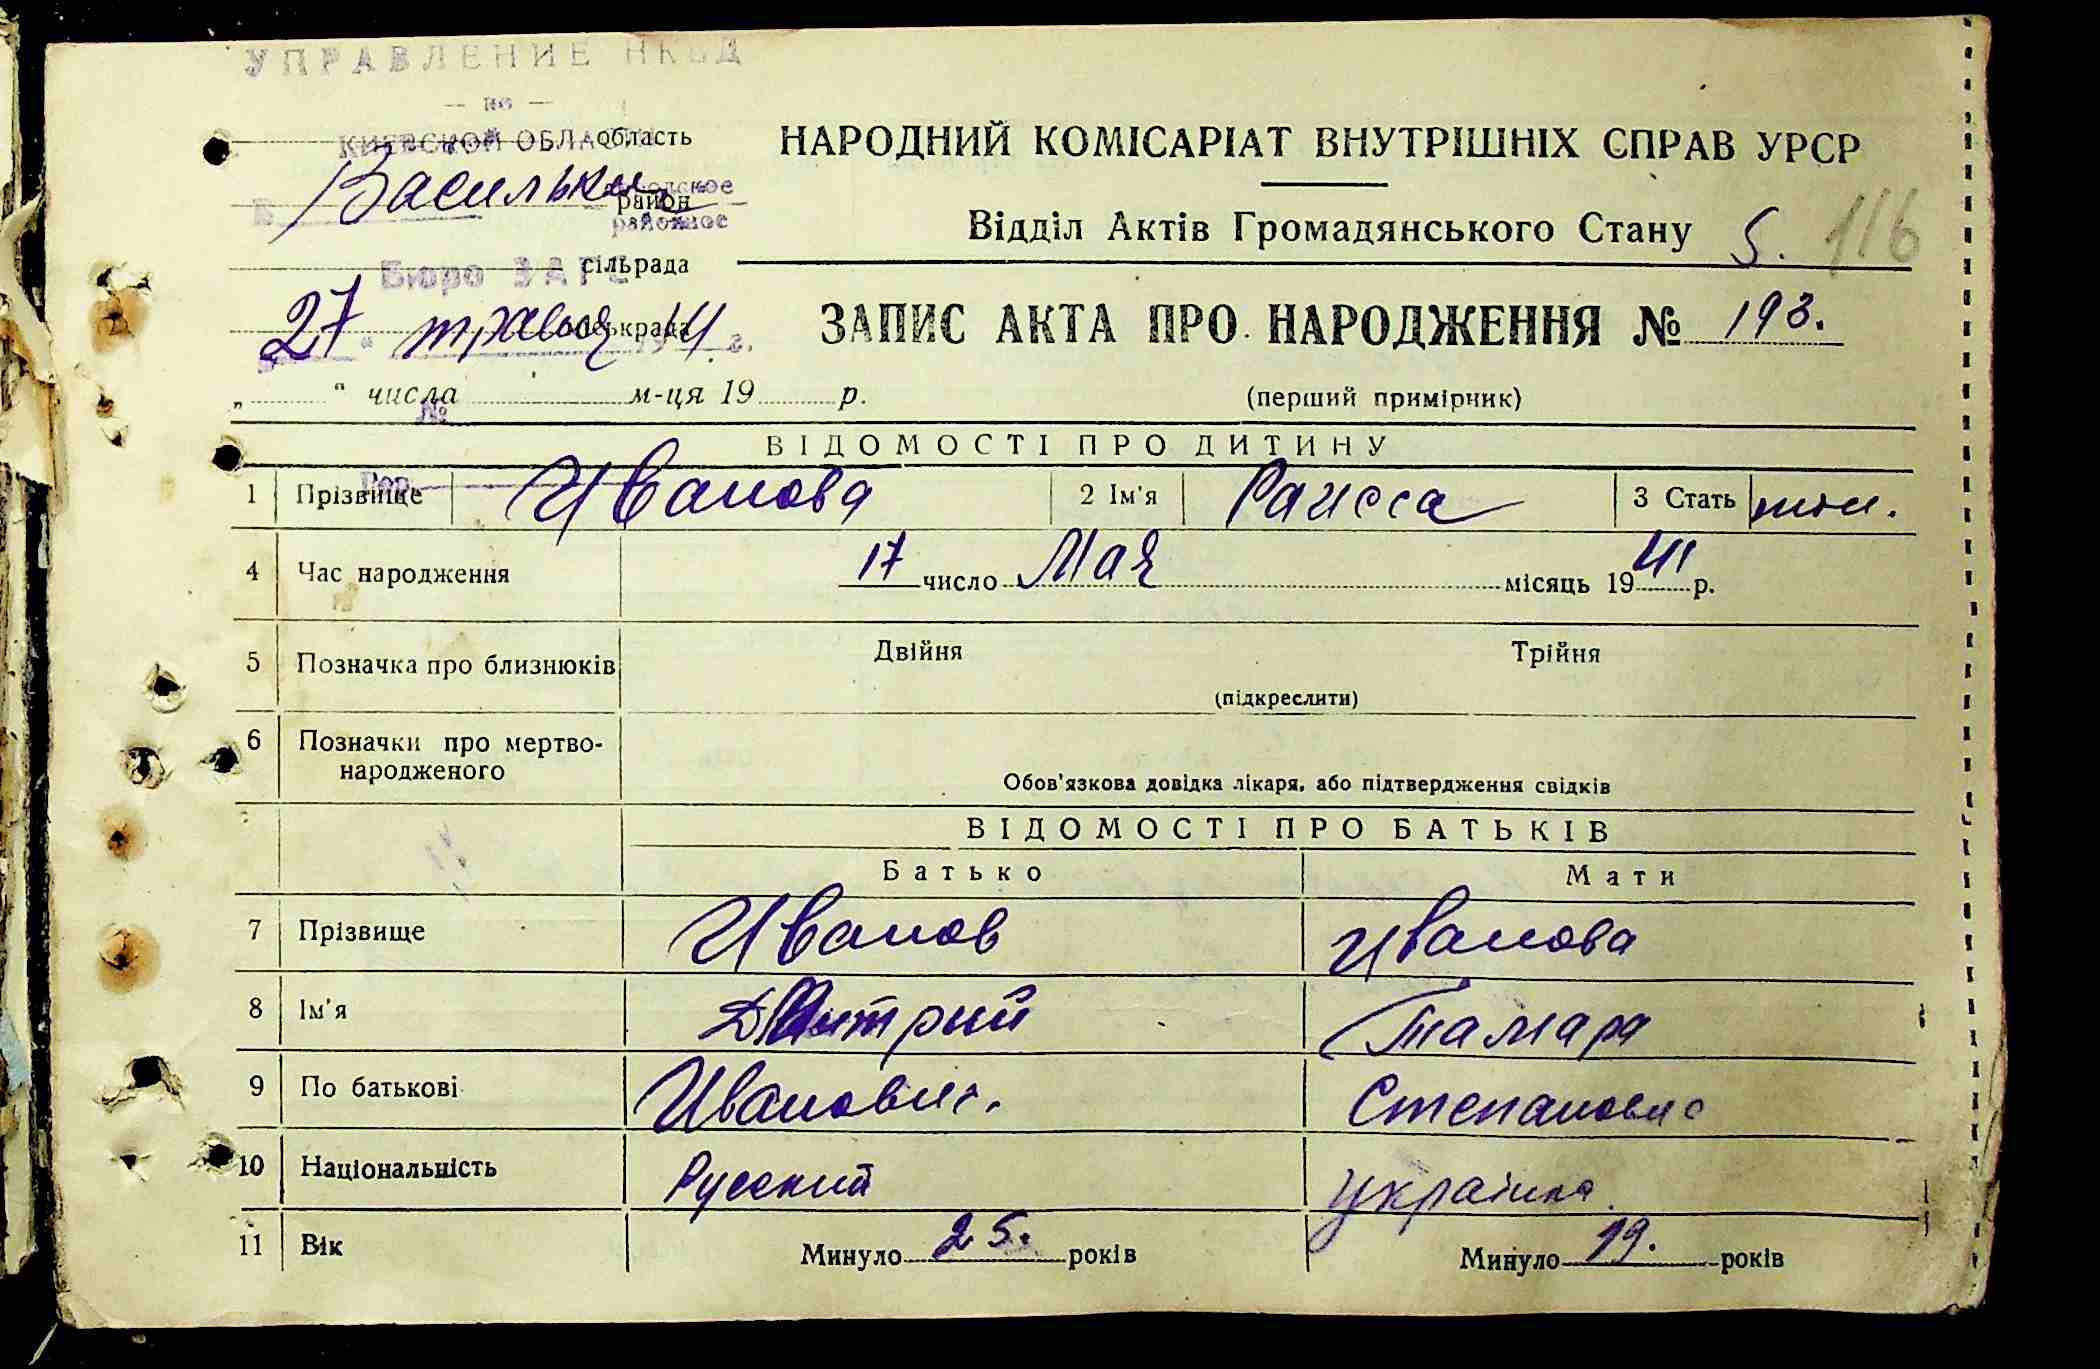 УПРАВЛЕНИЕ НКВД
— по —
КИЕВСКОЙ ОБЛА область
Васильки район
городское
районное
Бюро ЗАГС сільрада
27 травня 1941 г. міськрада
„ “ числа м-ця 19 р.
№
НАРОДНИЙ КОМІСАРІАТ ВНУТРІШНІХ СПРАВ УРСР
Відділ Актів Громадянського Стану 5. 116
ЗАПИС АКТА ПРО НАРОДЖЕННЯ № 193.
(перший примірник)
ВІДОМОСТІ ПРО ДИТИНУ
1 Прізвище Иванова 2 Ім'я Раисса 3 Стать жін.
4 Час народження 17 число Мая місяць 1941 р.
5 Позначка про близнюків Двійня Трійня
(підкреслити)
6 Позначки про мертво-
народженого
Обов'язкова довідка лікаря, або підтвердження свідків
ВІДОМОСТІ ПРО БАТЬКІВ
Батько Мати
7 Прізвище Иванов Иванова
8 Ім'я Дмитрий Тамара
9 По батькові Иванович. Степановна
10 Національність Русский Українка
11 Вік Минуло 25. років Минуло 19. років